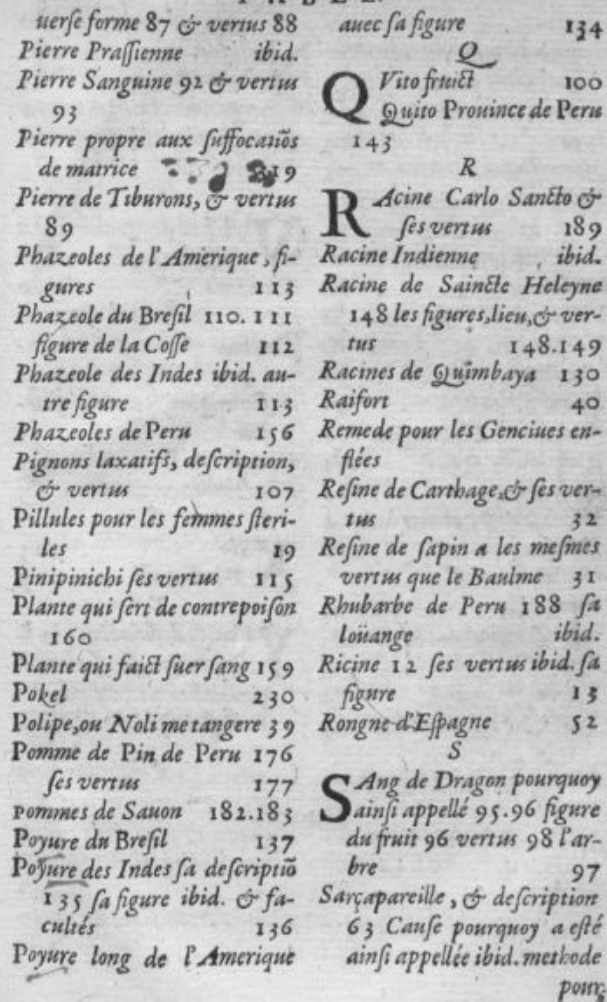 uerſe forme 87 & vertus 88
Pierre Praſſienne ibid.
Pierre Sanguine 92 & vertus
93
Pierre propre aux ſuffocatiōs
de matrice 19
Pierre de Tiburons, & vertus
89
Phazeoles de l'Amerique, fi-
gures 113
Phazeole du Breſil 110. 111
figure de la Coſſe 112
Phazeole des Indes ibid. au-
tre figure 113
Phazeoles de Peru 156
Pignons laxatifs, deſcription,
& vertus 107
Pillules pour les femmes ſteri-
les 19
Pinipinichi ſes vertus 115
Plante qui ſert de contrepoiſon
160
Plante qui faict ſuer ſang 159
Pokel 230
Polipe, ou Noli me tangere 39
Pomme de Pin de Peru 176
ſes vertus 177
Pommes de Sauon 182.183
Poyure du Breſil 137
Poyure des Indes ſa deſcriptiō
135 ſa figure ibid. & fa-
cultés 136
Poyure long de l'Amerique
auec ſa figure 134
Q
QVito fruict 100
Quito Prouince de Peru
143
R
RAcine Carlo Sancto &
ſes vertus 189
Racine Indienne ibid.
Racine de Saincte Heleyne
148 les figures, lieu, & ver-
tus 148.149
Racines de Quimbaya 130
Raifort 40
Remede pour les Genciues en-
flées
Reſine de Carthage, & ſes ver-
tus 32
Reſine de ſapin a les meſmes
vertus que le Baulme 31
Rhubarbe de Peru 188 ſa
loüange ibid.
Ricine 12 ſes vertus ibid. ſa
figure 13
Rongne d'Eſpagne 52
S
SAng de Dragon pourquoy
ainſi appellé 95.96 figure
du fruit 96 vertus 98 l'ar-
bre 97
Sarçapareille, & deſcription
63 Cauſe pourquoy a eſté
ainſi appellée ibid. methode
pour